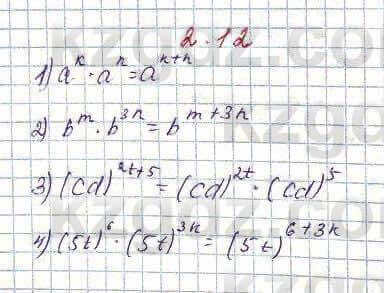 2.12
1) a^k · a^n = a^{k+n}
2) b^m · b^{3n} = b^{m+3n}
3) (cd)^{2t+5} = (cd)^{2t} · (cd)^5
4) (5t)^6 · (5t)^{3k} = (5t)^{6+3k}